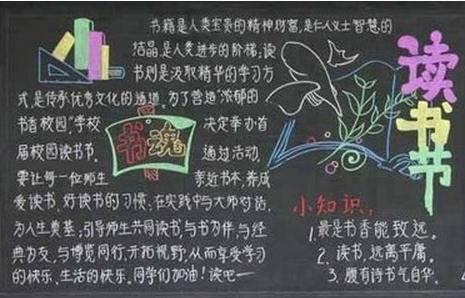 书籍是人类宝贵的精神财富,是仁人义士智慧的
结晶,是人类进步的阶梯;读
书则是汲取精华的学习方
式,是传承优秀文化的通道。为了营造“浓郁的
书香校园”,学校 决定举办首
届校园读书节。 通过活动,
要让每一位师生 亲近书本,养成
爱读书,好读书的习惯;在实践中与大师对话,
为人生奠基;引导师生共同读书,与书为伴,与经
典为友,与博览同行,开拓视野,从而享受学习
的快乐、生活的快乐。同学们加油!读吧—
书魂
读书节
小知识:
1.最是书香能致远。
2.读书,远离平庸。
3.腹有诗书气自华。